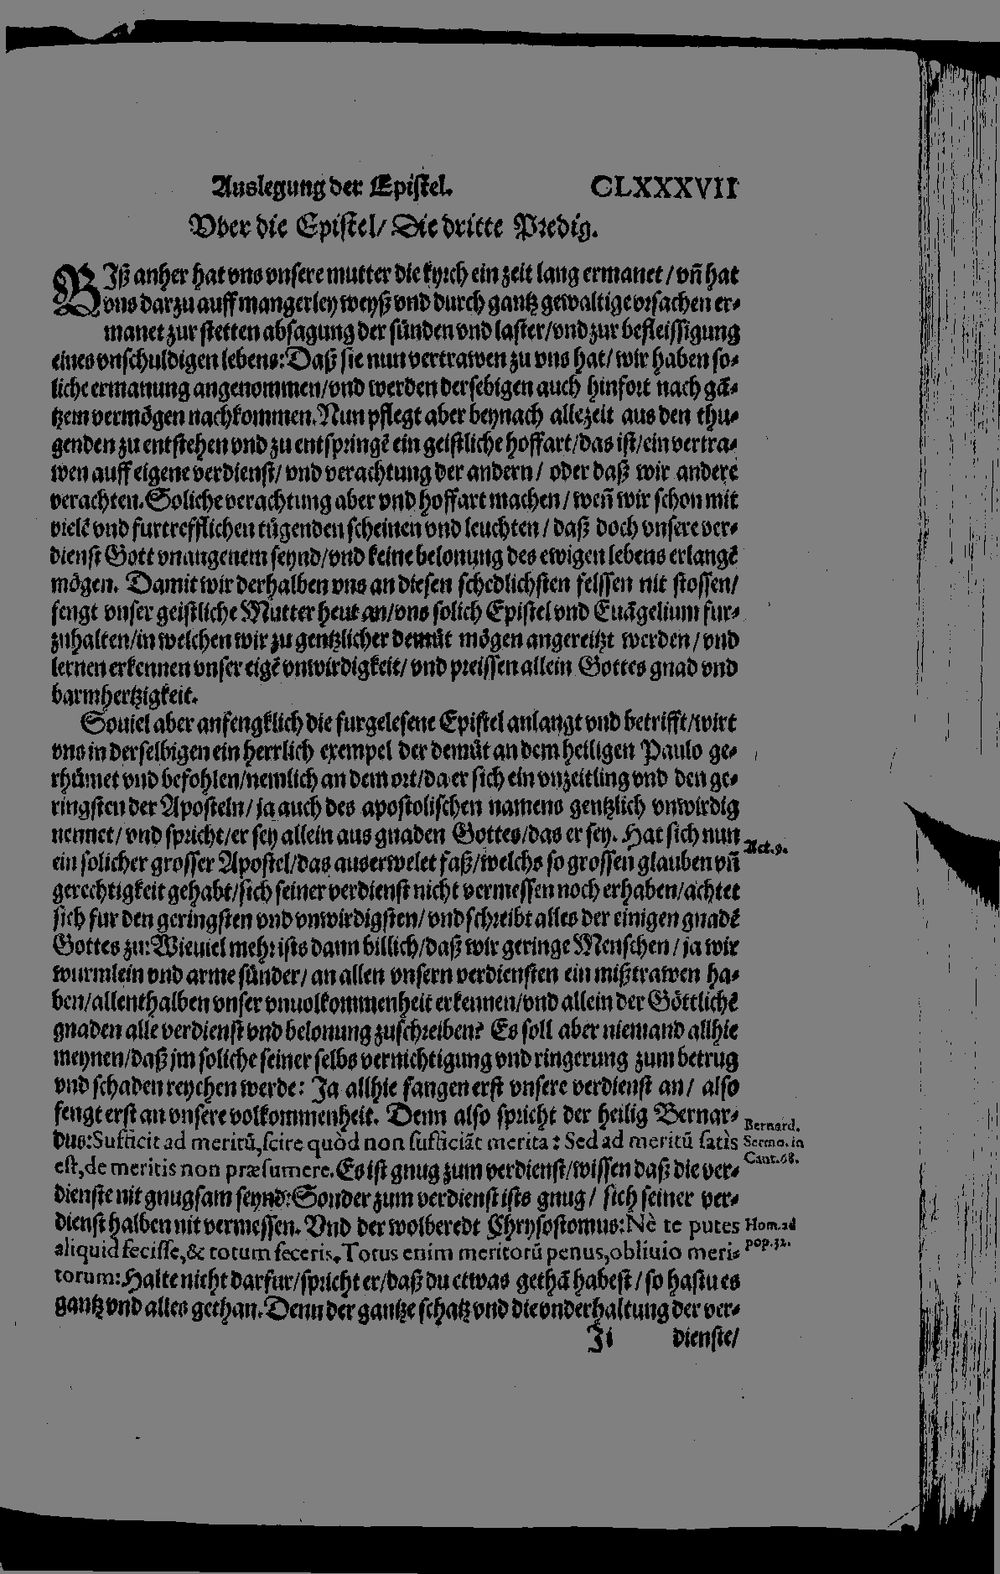 Auslegung der Epistel. CLXXXVII
Vber die Epistel/ Die dritte Predig.
BIß anher hat vns vnsere mutter die kyrch ein zeit lang ermanet / vñ hat
vns darzu auff mangerley weyß vnd durch gantz gewaltige vrsachen er-
manet zur stetten absagung der sünden vnd laster/vnd zur befleissigung
eines vnschuldigen lebens: Daß sie nun vertrawen zu vns hat/ wir haben so-
liche ermanung angenommen/vnd werden dersebigen auch hinfort nach gā-
tzem vermögen nachkommen. Nun pflegt aber beynach allezeit aus den thu-
genden zu entstehen vnd zu entspringē ein geistliche hoffart/das ist/ein vertra-
wen auff eigene verdienst/ vnd verachtung der andern / oder daß wir andere
verachten. Soliche verachtung aber vnd hoffart machen / weñ wir schon mit
vielē vnd furtrefflichen tügenden scheinen vnd leuchten / daß doch vnsere ver-
dienst Gott vnangenem seynd/vnd keine belonung des ewigen lebens erlangē
mögen. Damit wir derhalben vns an diesen schedlichsten felssen nit stossen/
fengt vnser geistliche Mutter heut an/vns solich Epistel vnd Euāgelium fur-
zuhalten/in welchen wir zu gentzlicher demüt mögen angereitzt werden / vnd
lernen erkennen vnser eigē vnwirdigkeit/ vnd preissen allein Gottes gnad vnd
barmhertzigkeit.
Souiel aber anfengklich die furgelesene Epistel anlangt vnd betrifft/wirt
vns in derselbigen ein herrlich exempel der demüt an dem heiligen Paulo ge-
rhümet vnd befohlen/nemlich an dem ort/da er sich ein vnzeitling vnd den ge-
ringsten der Aposteln/ ja auch des apostolischen namens gentzlich vnwirdig
nennet/ vnd spricht/er sey allein aus gnaden Gottes/das er sey. Hat sich nun
Act.9.
ein solicher grosser Apostel/das auserwelet faß/welchs so grossen glauben vñ
gerechtigkeit gehabt/sich seiner verdienst nicht vermessen noch erhaben/achtet
sich fur den geringsten vnd vnwirdigsten/ vnd schreibt alles der einigen gnadē
Gottes zu: Wieuiel mehr ists dann billich/daß wir geringe Menschen / ja wir
wurmlein vnd arme sünder/ an allen vnsern verdiensten ein mißtrawen ha-
ben/allenthalben vnser vnuolkommenheit erkennen/vnd allein der Göttlichē
gnaden alle verdienst vnd belonung zuschreiben? Es soll aber niemand allhie
meynen/daß jm soliche seiner selbs vernichtigung vnd ringerung zum betrug
vnd schaden reychen werde: Ja allhie fangen erst vnsere verdienst an/ also
fengt erst an vnsere volkommenheit. Denn also spricht der heilig Bernar-
Bernard.
Sermo. in
Cant.68.
dus: Sufficit ad meritū, scire quòd non sufficiāt merita: Sed ad meritū satis
est, de meritis non præsumere. Es ist gnug zum verdienst/wissen daß die ver-
dienste nit gnugsam seynd: Sonder zum verdienst ists gnug / sich seiner ver-
dienst halben nit vermessen. Vnd der wolberedt Chrysostomus: Nè te putes
Hom. ad
pop.32.
aliquid fecisse, & totum feceris, Totus enim meritorū penus, obliuio meri-
torum: Halte nicht darfur/spricht er/daß du etwas gethā habest / so hastu es
gantz vnd alles gethan. Denn der gantze schatz vnd die vnderhaltung der ver-
Ji dienste/